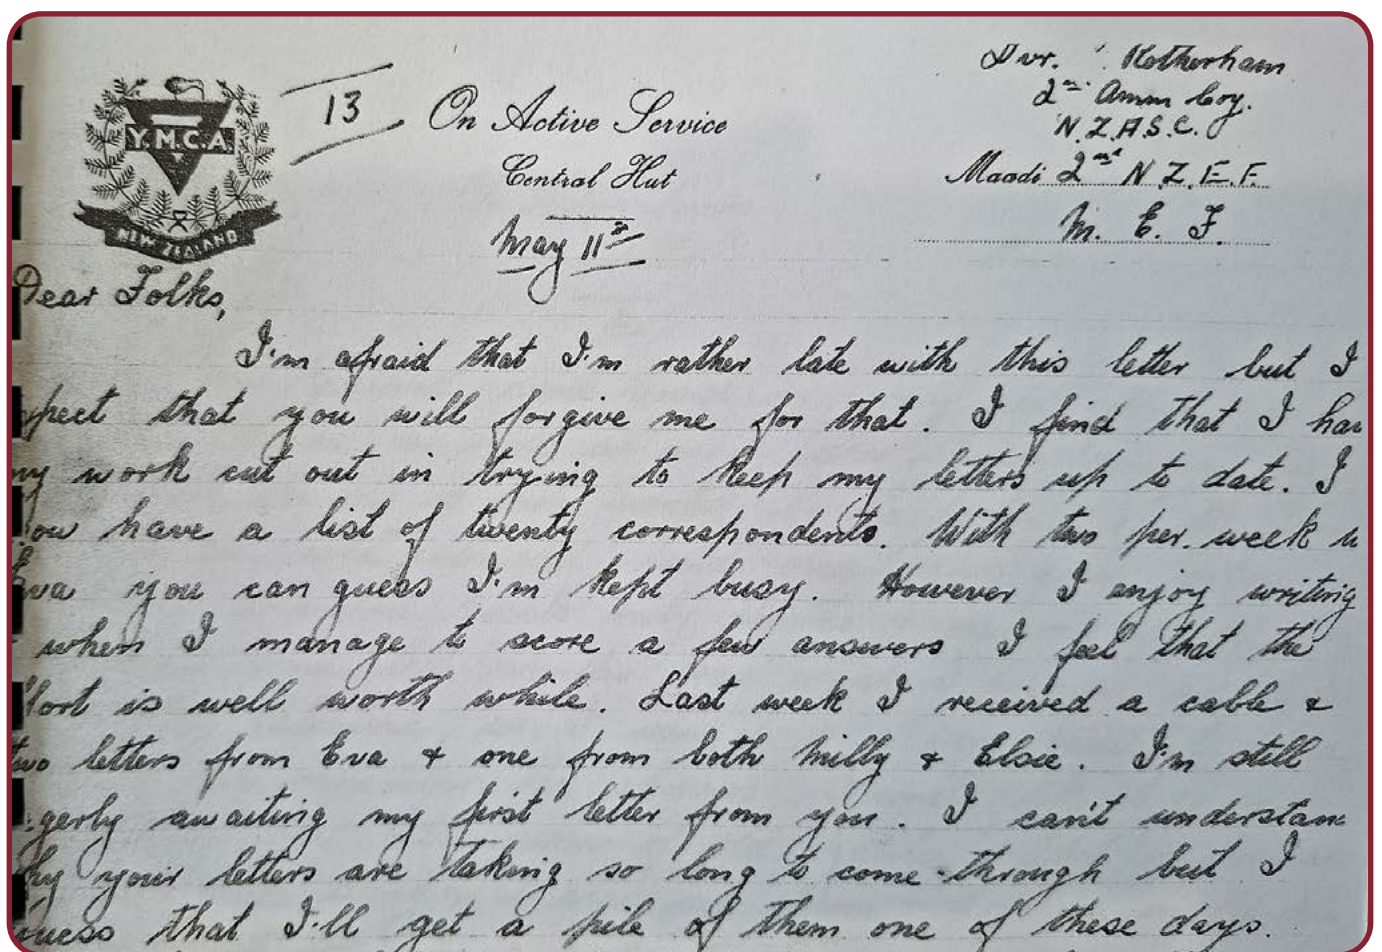 Y.M.C.A.
NEW ZEALAND
13
On Active Service
Central Hut
May 11th
Dvr. Rotherham
2nd Amm Coy.
N.Z.A.S.C.
Maadi 2nd N.Z.E.F.
M. E. F.
Dear Folks,
I'm afraid that I'm rather late with this letter but I
pect that you will forgive me for that. I find that I hav
my work cut out in trying to keep my letters up to date. I
ou have a list of twenty correspondents. With two per. week
Eva you can guess I'm kept busy. However I enjoy writing
when I manage to score a few answers I feel that the
fort is well worth while. Last week I received a cable &
two letters from Eva & one from both Milly & Elsie. I'm still
gerly awaiting my first letter from you. I can't understan
hy your letters are taking so long to come through but I
guess that I'll get a pile of them one of these days.